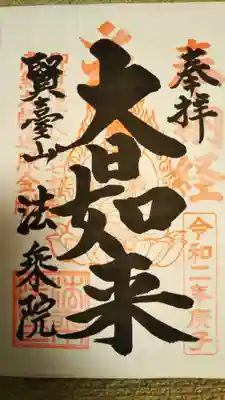 奉拝
令和二年庚子
大日如来
賢臺山法乗院